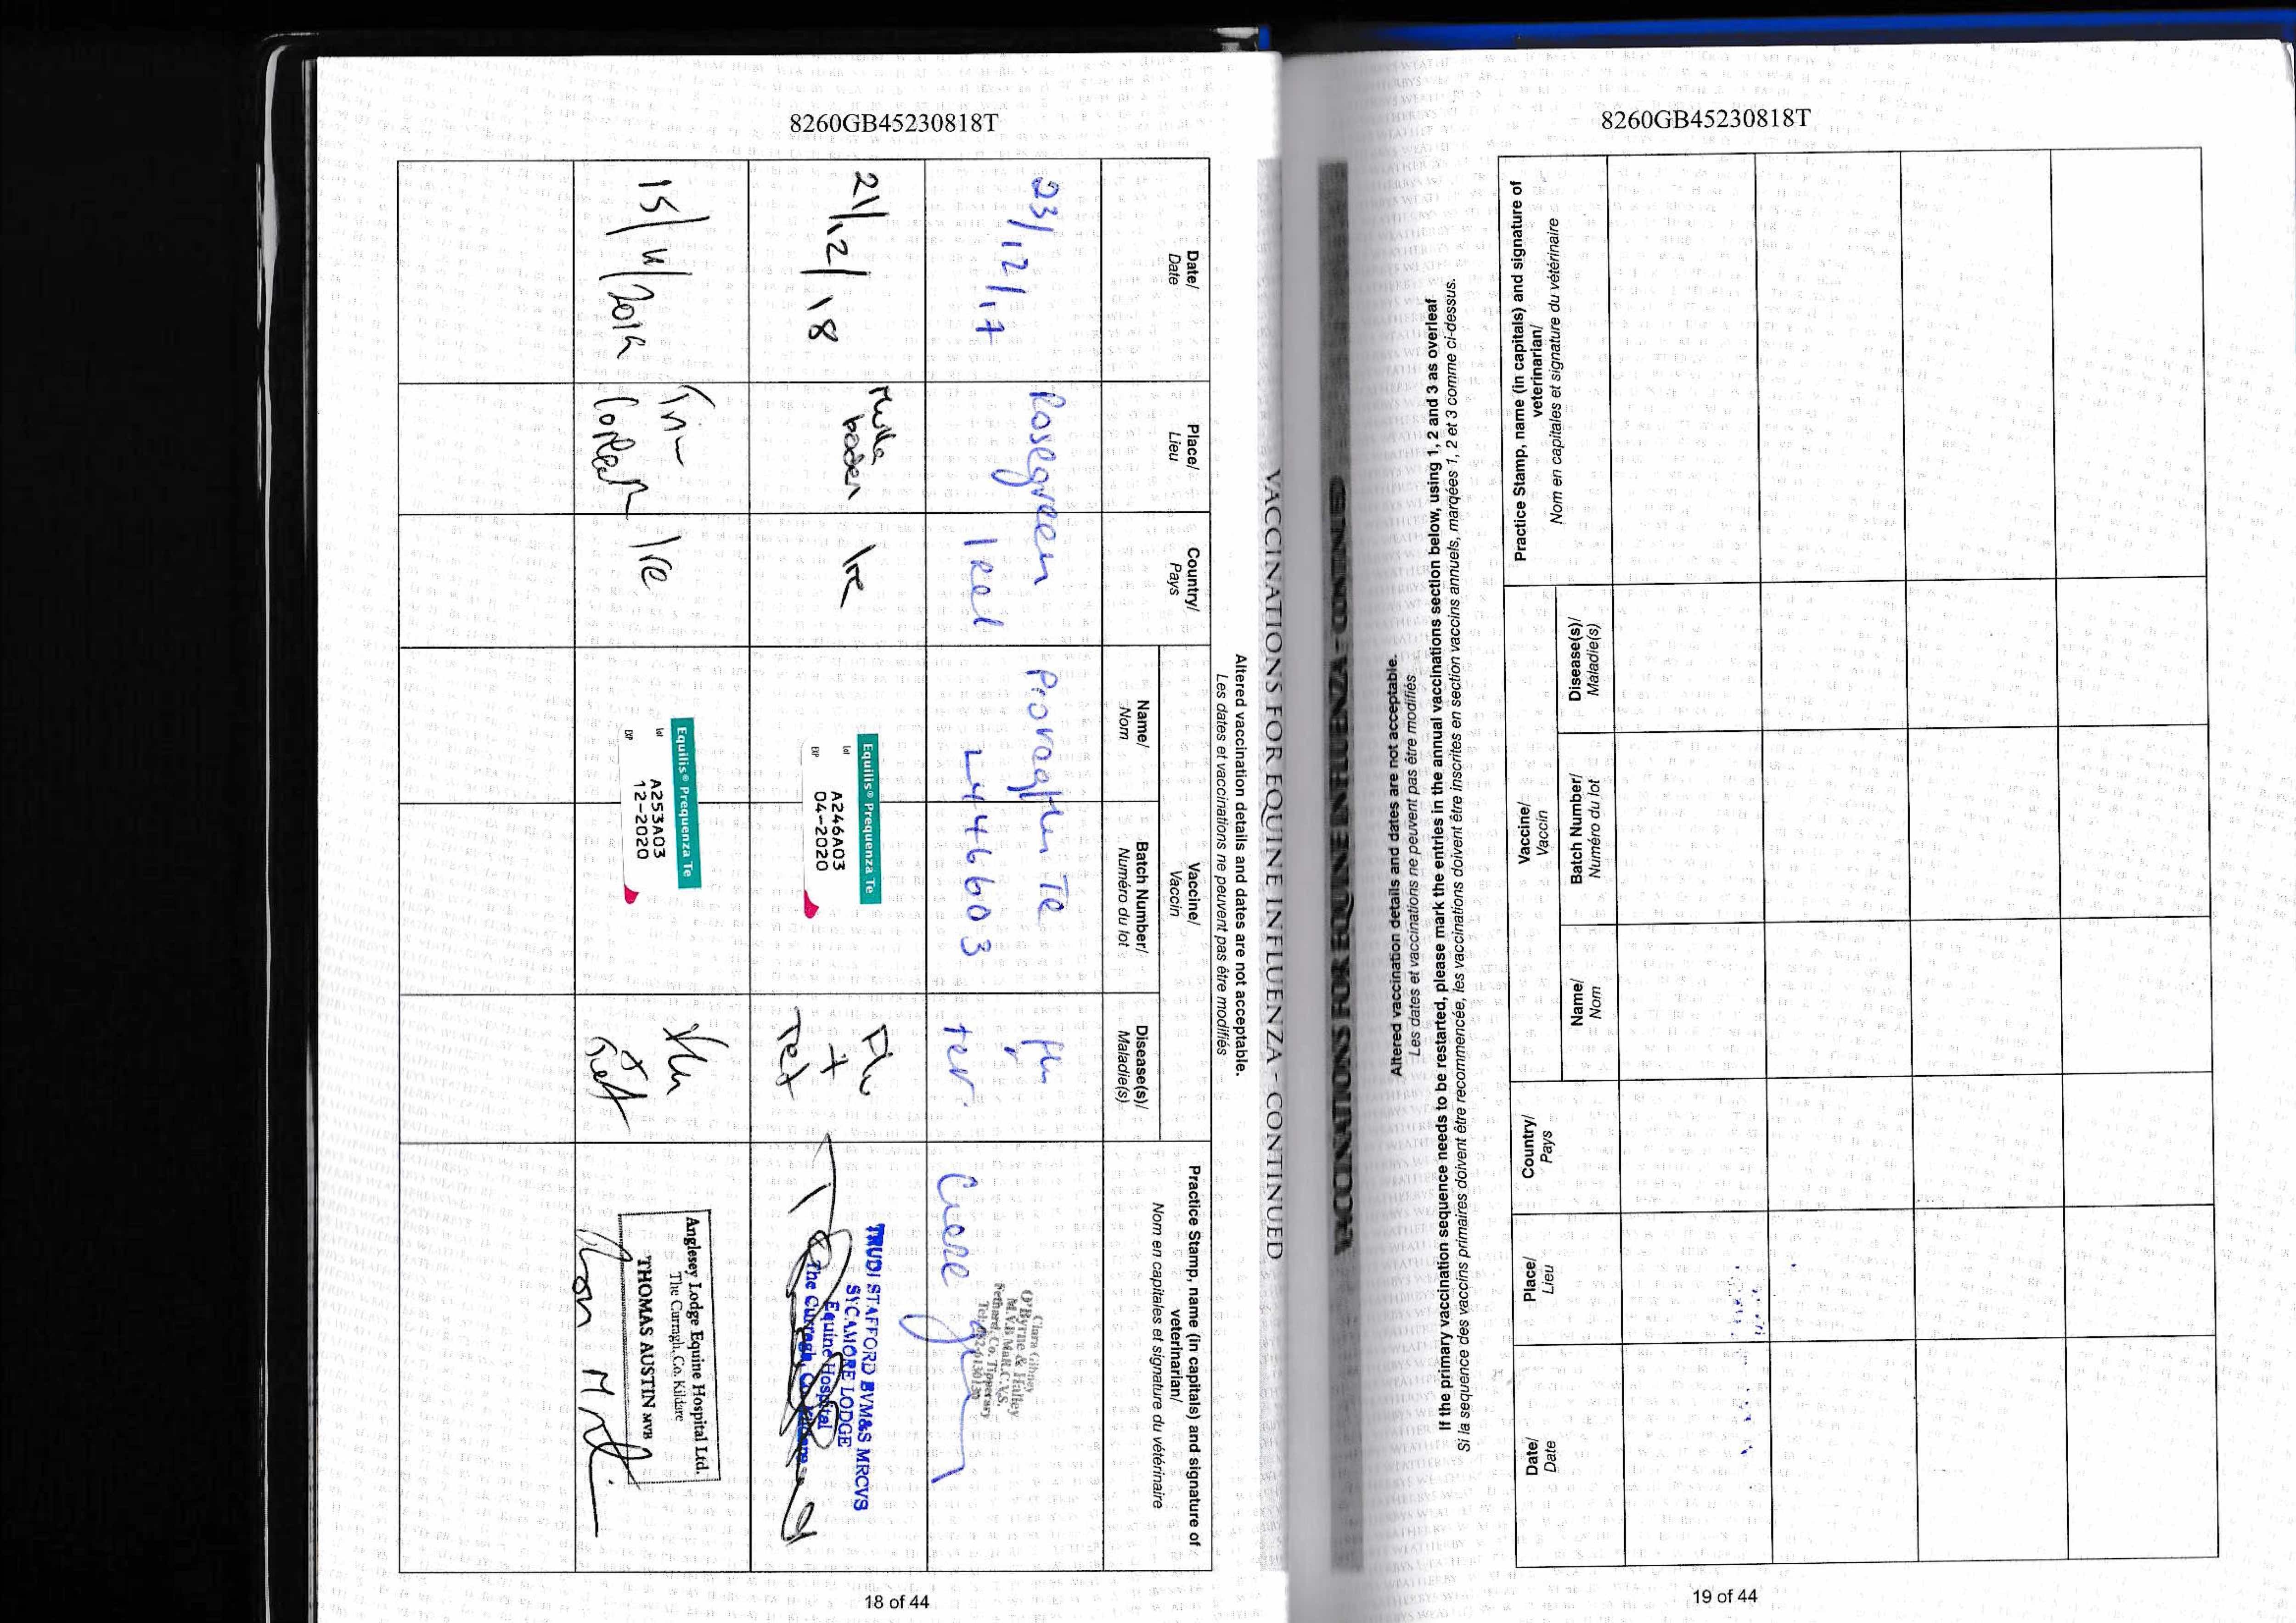 8260GB45230818T
VACCINATIONS FOR EQUINE INFLUENZA - CONTINUED
Altered vaccination details and dates are not acceptable.
Les dates et vaccinations ne peuvent pas être modifiés
Date/
Date
Place/
Lieu
Country/
Pays
Vaccine/
Vaccin
Name/
Nom
Batch Number/
Numéro du lot
Disease(s)/
Maladie(s)
Practice Stamp, name (in capitals) and signature of
veterinarian/
Nom en capitales et signature du vétérinaire
23/12/17
Rosegreen
Irel
Te
L446603
flu
Clara Gibney
O'Byrne & Halley
M.V.B M.R.C.V.S.
Fethard, Co. Tipperary
21/12/18
Ire
Equilis® Prequenza Te
lot A246A03
EXP 04-2020
Flu
+
Tet
TRUDI STAFFORD BVM&S MRCVS
SYCAMORE LODGE
Equine Hospital
The Curragh, Co. Kildare
15/11/2019
Ire
Equilis® Prequenza Te
lot A253A03
EXP 12-2020
Flu
Tet
Anglesey Lodge Equine Hospital Ltd.
The Curragh, Co. Kildare
THOMAS AUSTIN MVB
18 of 44
8260GB45230818T
VACCINATIONS FOR EQUINE INFLUENZA - CONTINUED
Altered vaccination details and dates are not acceptable.
Les dates et vaccinations ne peuvent pas être modifiés
If the primary vaccination sequence needs to be restarted, please mark the entries in the annual vaccinations section below, using 1, 2 and 3 as overleaf
Si la sequence des vaccins primaires doivent être recommencée, les vaccinations doivent être inscrites en section vaccins annuels, marqées 1, 2 et 3 comme ci-dessus.
Date/
Date
Place/
Lieu
Country/
Pays
Vaccine/
Vaccin
Name/
Nom
Batch Number/
Numéro du lot
Diseases(s)/
Maladie(s)
Practice Stamp, name (in capitals) and signature of
veterinarian/
Nom en capitales et signature du vétérinaire
19 of 44